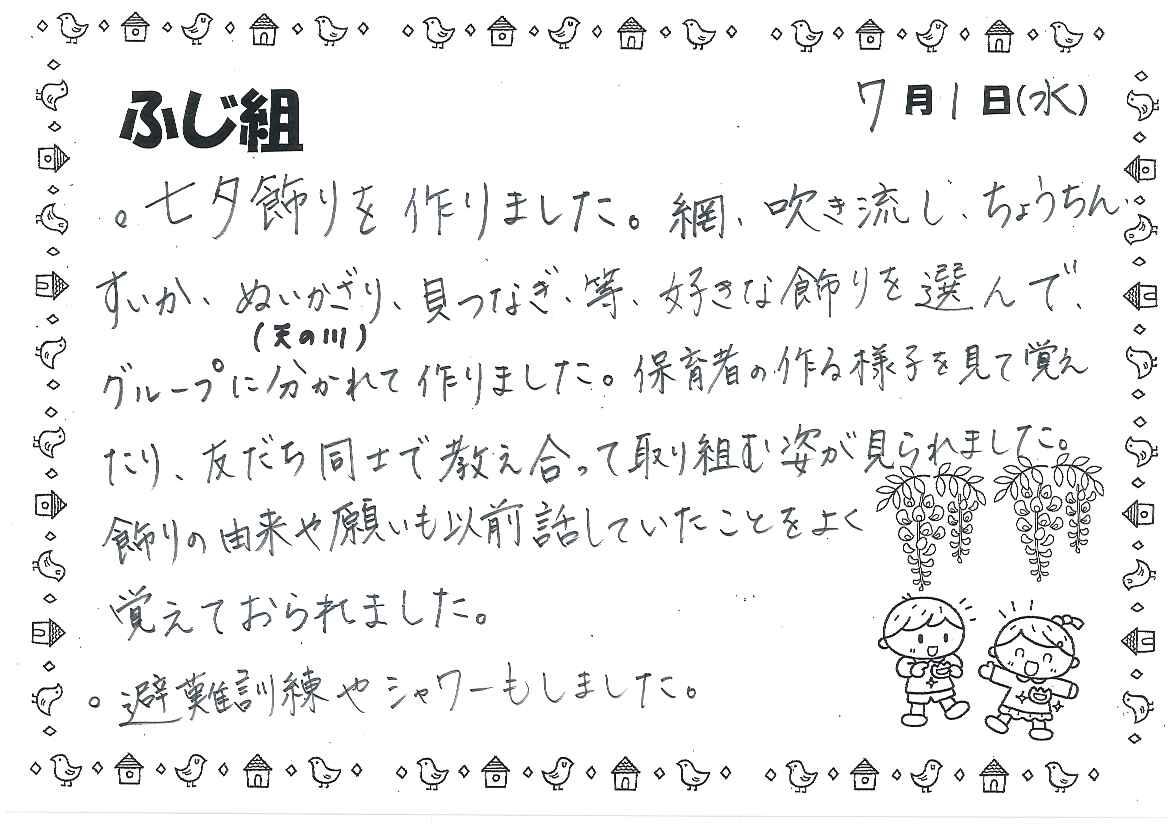 ふじ組
7月1日(水)
。七夕飾りを作りました。網、吹き流し、ちょうちん、
すいか、ぬいかざり、貝つなぎ、等、好きな飾りを選んで、
(天の川)
グループに分かれて作りました。保育者の作る様子を見て覚え
たり、友だち同士で教え合って取り組む姿が見られました。
飾りの由来や願いも以前話していたことをよく
覚えておられました。
。避難訓練やシャワーもしました。